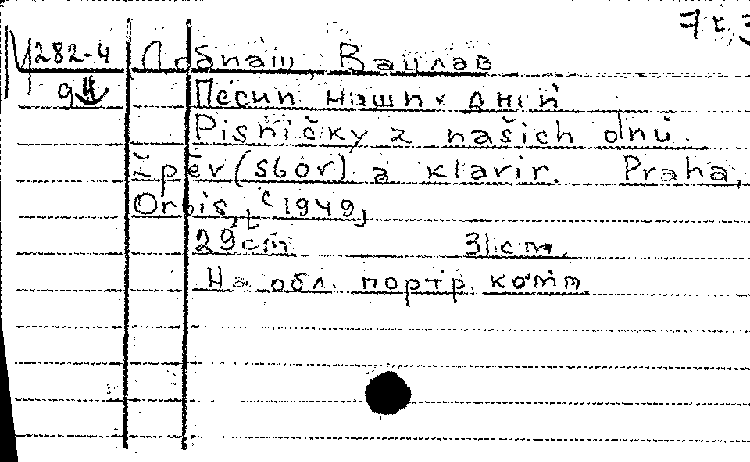 282-4 Добпаш, Вацлав
Песни наших дней
Písničky z našich dnů.
Zpěv (sbor) a klavír. Praha,
Orbis, [c 1949]
29 ст 31 cm.
На обл. портр. комп